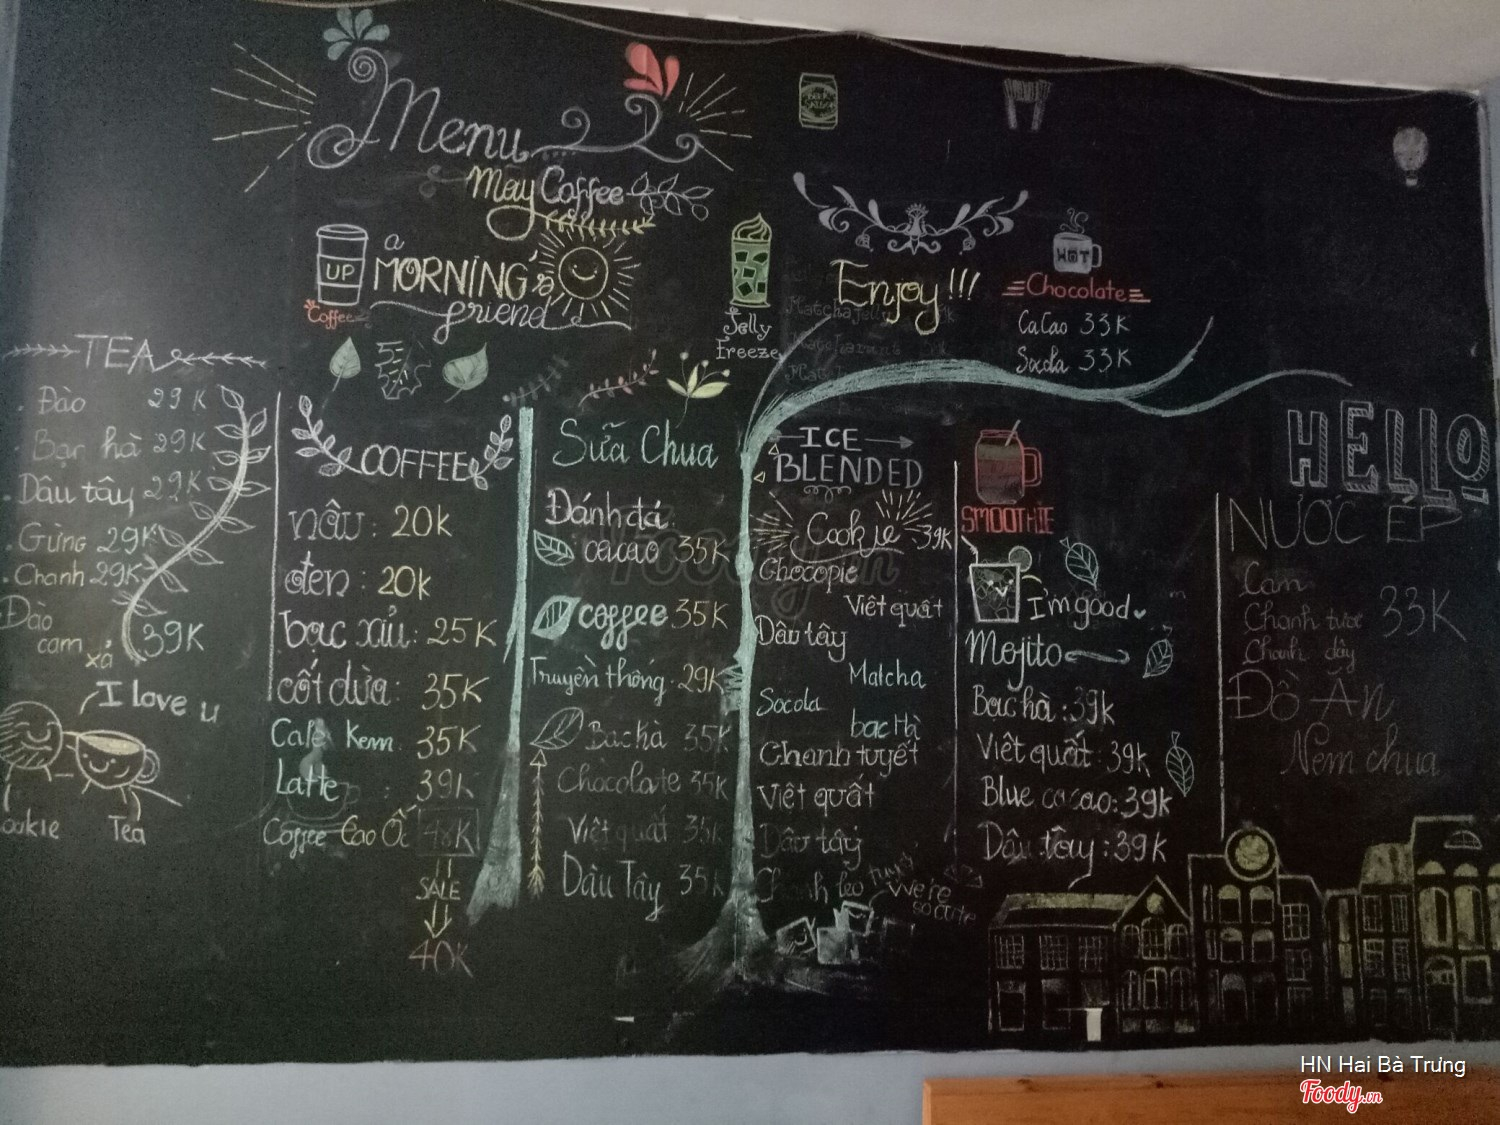 Menu
May Coffee
UP
Coffee
a
MORNING's
friend
Jelly
Freeze
Enjoy!!!
HOT
Chocolate
CaCao 33K
Socola 33K
TEA
. Đào 29K
. Bạc hà 29K
. Dâu tây 29K
. Gừng 29K
. Chanh 29K
Đào
cam xả 39K
I love u
Tea
COFFEE
nâu : 20k
đen : 20k
bạc xỉu : 25K
cốt dừa : 35K
Café Kem 35K
Latte : 39k
Coffee Cao Ốc 48K
SALE
40K
Sữa Chua
Đánh đá
cacao 35K
coffee 35K
Truyền thống 29K
Bạc hà 35K
Chocolate 35K
Việt quất 35K
Dâu Tây 35K
ICE
BLENDED
Cookie 39K
Chocopie
Việt quất
Dâu tây
Matcha
Socola
bạc Hà
Chanh tuyết
Việt quất
Dâu tây
Chanh leo tuyết
We're
so cute
SMOOTHIE
I'm good
Mojito
Bạc hà : 39k
Việt quất : 39k
Blue cacao : 39k
Dâu tây : 39k
HELLO!
NƯỚC ÉP
Cam
Chanh tươi 33K
Chanh dây
Đồ Ăn
Nem chua
HN Hai Bà Trưng
Foody.vn